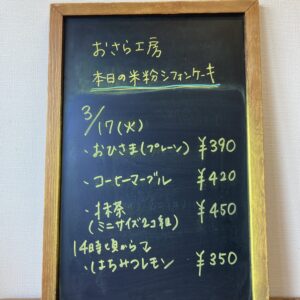 おさら工房
本日の米粉シフォンケーキ
3/17(火)
・おひさま(プレーン) ¥390
・コーヒーマーブル ¥420
・抹茶 ¥450
(ミニサイズ2コ組)
14時頃からで
・はちみつレモン ¥350